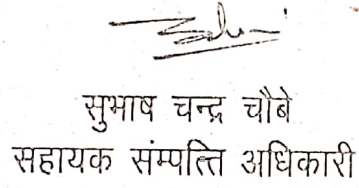 सुभाष चन्द्र चौबे
सहायक संम्पत्ति अधिकारी